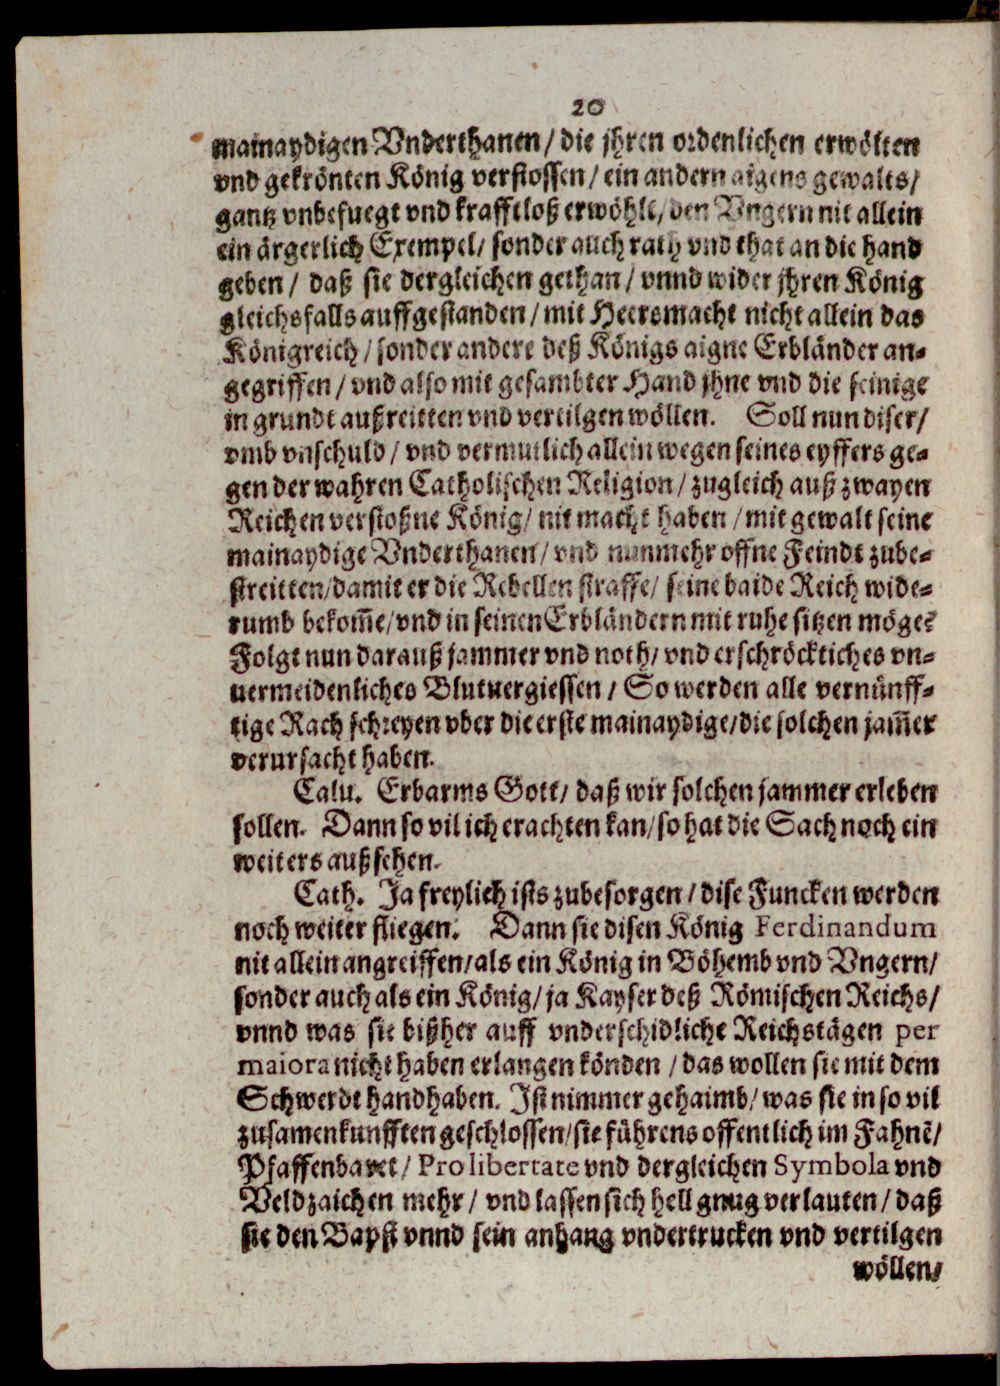 20
mainaydigen Vnderthanen / die jhren ordenlichen erwölten
vnd gekrönten König verstossen / ein andern aigens gewalts /
gantz vnbefuegt vnd krafftloß erwöhlt / den Vngern nit allein
ein ärgerlich Exempel / sonder auch rath vnd that an die hand
geben / daß sie dergleichen gethan / vnnd wider jhren König
gleichsfalls auffgestanden / mit Heersmacht nicht allein das
Königreich / sonder andere deß Königs aigne Erbländer an-
gegriffen / vnd also mit gesambter Hand jhne vnd die seinige
in grundt außreitten vnd vertilgen wöllen. Soll nun diser /
vmb vnschuld / vnd vermutlich allein wegen seines eyffers ge-
gen der wahren Catholischen Religion / zugleich auß zwayen
Reichen verstoßne König / nit macht haben / mit gewalt seine
mainaydige Vnderthanen / vnd nunmehr offne Feindt zube-
streitten / damit er die Rebellen straffe / seine baide Reich wide-
rumb bekom̃e / vnd in seinen Erbländern mit ruhe sitzen möge?
Folgt nun darauß jammer vnd noth / vnd erschröckliches vn-
uermeidenliches Blutuergiessen / So werden alle vernünff-
tige Rach schreyen vber die erste mainaydige / die solchen jam̃er
verursacht haben.
Calu. Erbarms Gott / daß wir solchen jammer erleben
sollen. Dann so vil ich erachten kan / so hat die Sach noch ein
weiters außsehen.
Cath. Ja freylich ists zubesorgen / dise Funcken werden
noch weiter fliegen. Dann sie disen König Ferdinandum
nit allein angreiffen / als ein König in Böhemb vnd Vngern /
sonder auch als ein König / ja Kayser deß Römischen Reichs /
vnnd was sie bißher auff vnderschidliche Reichstägen per
maiora nicht haben erlangen könden / das wollen sie mit dem
Schwerdt handhaben. Ist nimmer gehaimb / was sie in so vil
zusamenkunfften geschlossen / sie führens offentlich im Fahnē /
Pfaffenbaret / Pro libertate vnd dergleichen Symbola vnd
Veldzaichen mehr / vnd lassen sich hell gnug verlauten / daß
sie den Bapst vnnd sein anhang vndertrucken vnd vertilgen
wöllen /